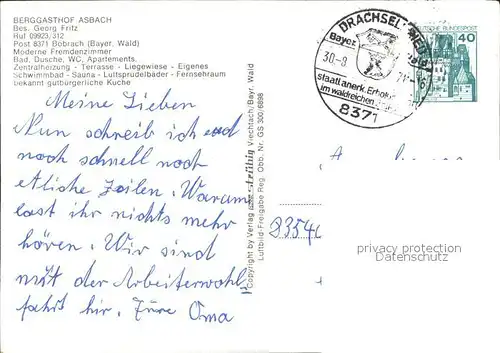 BERGGASTHOF ASBACH
Bes. Georg Fritz
Ruf 09923/312
Post 8371 Bobrach (Bayer. Wald)
Moderne Fremdenzimmer
Bad, Dusche, WC, Apartements.
Zentralheizung - Terrasse - Liegewiese - Eigenes
Schwimmbad - Sauna - Luftsprudelbäder - Fernsehraum
bekannt gutbürgerliche Küche
Meine Lieben
Nun schreib ich euch
noch schnell noch
etliche Zeilen. Warum
last ihr nichts mehr
hören. Wir sind
mit der Arbeiterwohl
fahrt hir. Eure Oma
Copyright by Verlag Viechtach/Bayr. Wald
Luftbild-Freigabe Reg. Obb. Nr. GS 300/6898
Bayer.
30.-8.
staatl.anerk.Erholu
im waldreichen
8371
DEUTSCHE BUNDESPOST
40
privacy protection
Datenschutz